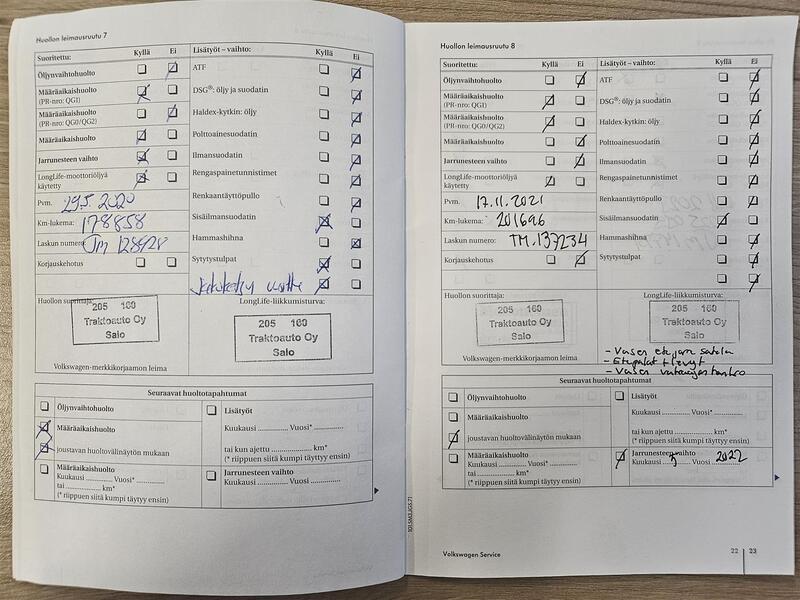 Huollon leimausruutu 7
Suoritettu: Kyllä Ei
Öljynvaihtohuolto
Määräaikaishuolto
(PR-nro: QGI)
Määräaikaishuolto
(PR-nro: QG0/QG2)
Määräaikaishuolto
Jarrunesteen vaihto
LongLife-moottoriöljyä
käytetty
Pvm. 29.5.2020
Km-lukema: 178858
Laskun numero: Tm 128928
Korjauskehotus
Lisätyöt – vaihto: Kyllä Ei
ATF
DSG®: öljy ja suodatin
Haldex-kytkin: öljy
Polttoainesuodatin
Ilmansuodatin
Rengaspainetunnistimet
Renkaantäyttöpullo
Sisäilmansuodatin
Hammashihna
Sytytystulpat
Huollon suorittaja:
205 160
Traktoauto Oy
Salo
Volkswagen-merkkikorjaamon leima
LongLife-liikkumisturva:
205 160
Traktoauto Oy
Salo
Seuraavat huoltotapahtumat
Öljynvaihtohuolto
Määräaikaishuolto
joustavan huoltovälinäytön mukaan
Määräaikaishuolto
Kuukausi ............ Vuosi*
tai ............... km*
(* riippuen siitä kumpi täyttyy ensin)
Lisätyöt
Kuukausi ............ Vuosi*
tai kun ajettu ............... km*
(* riippuen siitä kumpi täyttyy ensin)
Jarrunesteen vaihto
Kuukausi ............ Vuosi ............
Huollon leimausruutu 8
Suoritettu: Kyllä Ei
Öljynvaihtohuolto
Määräaikaishuolto
(PR-nro: QGI)
Määräaikaishuolto
(PR-nro: QG0/QG2)
Määräaikaishuolto
Jarrunesteen vaihto
LongLife-moottoriöljyä
käytetty
Pvm. 17.11.2021
Km-lukema: 201696
Laskun numero: TM.137234
Korjauskehotus
Lisätyöt – vaihto: Kyllä Ei
ATF
DSG®: öljy ja suodatin
Haldex-kytkin: öljy
Polttoainesuodatin
Ilmansuodatin
Rengaspainetunnistimet
Renkaantäyttöpullo
Sisäilmansuodatin
Hammashihna
Sytytystulpat
Huollon suorittaja:
205 160
Traktoauto Oy
Salo
Volkswagen-merkkikorjaamon leima
LongLife-liikkumisturva:
205 160
Traktoauto Oy
Salo
- Vasen
- Etupalat + levyt
- Vasen
Seuraavat huoltotapahtumat
Öljynvaihtohuolto
Määräaikaishuolto
joustavan huoltovälinäytön mukaan
Määräaikaishuolto
Kuukausi ............ Vuosi*
tai ............... km*
(* riippuen siitä kumpi täyttyy ensin)
Lisätyöt
Kuukausi ............ Vuosi*
tai kun ajettu ............... km*
(* riippuen siitä kumpi täyttyy ensin)
Jarrunesteen vaihto
Kuukausi Vuosi 2022
Volkswagen Service
22 23